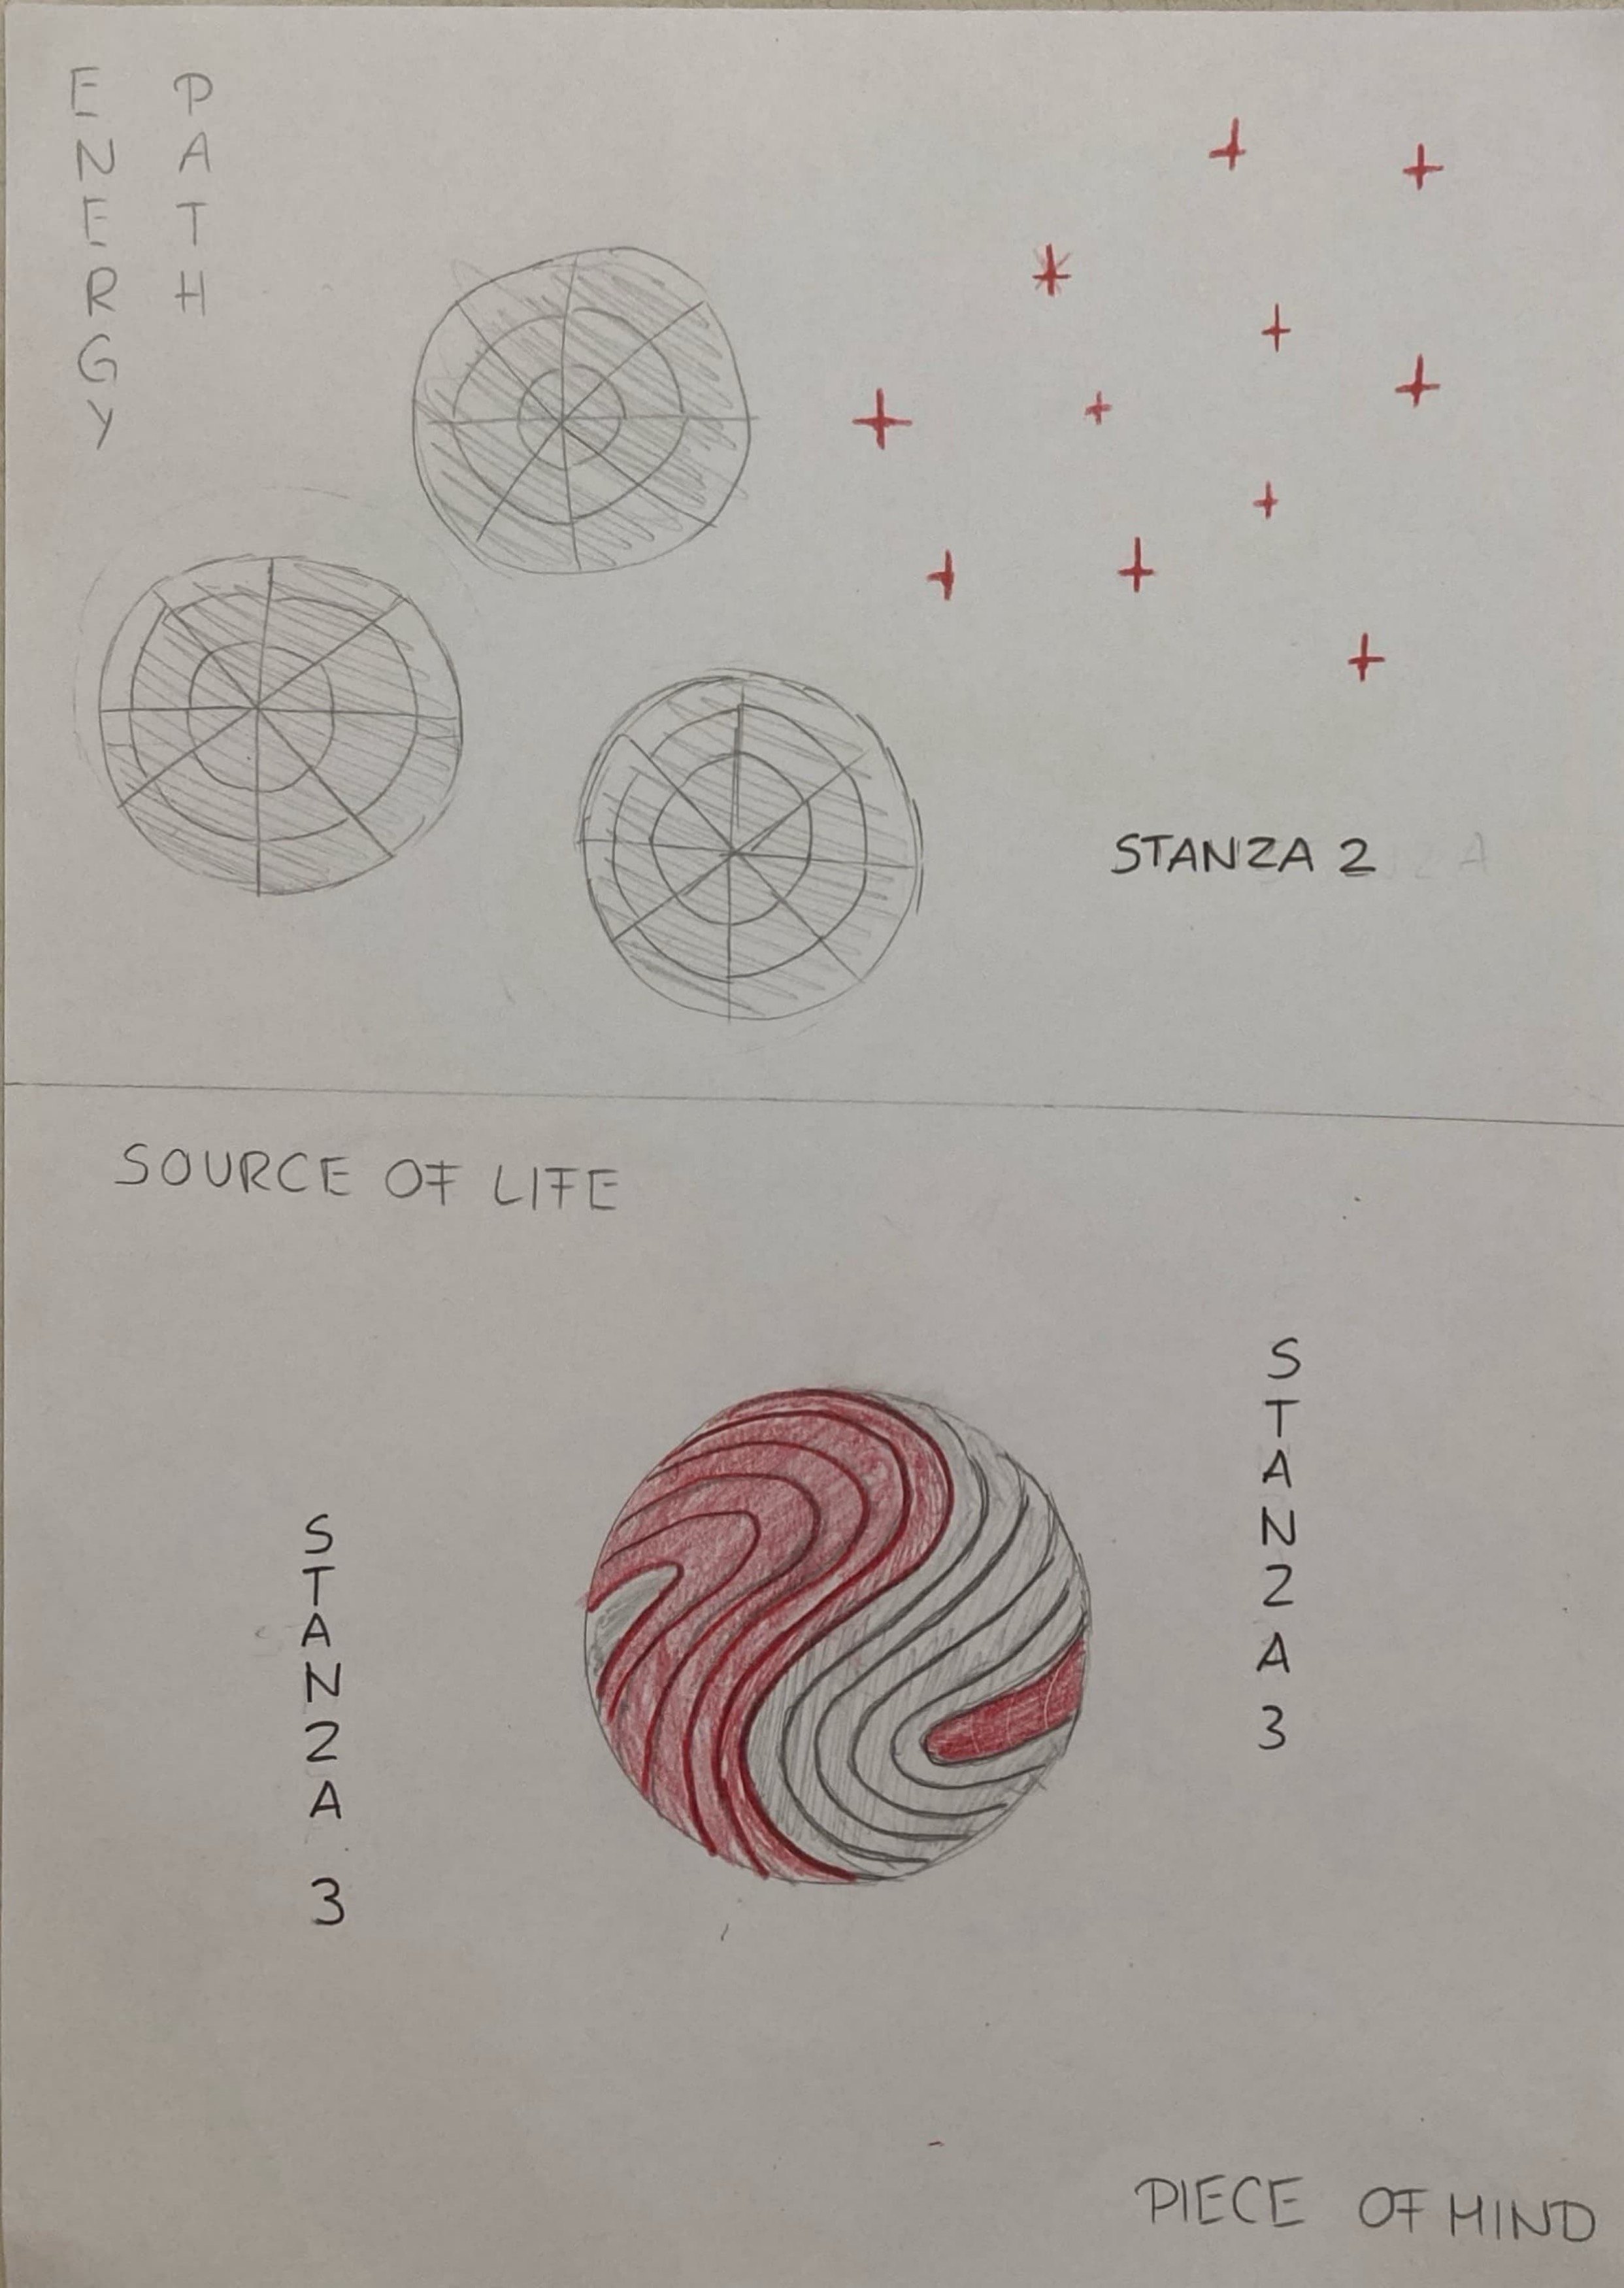 ENERGY
PATH
STANZA 2
SOURCE OF LIFE
STANZA 3
STANZA 3
PIECE OF MIND